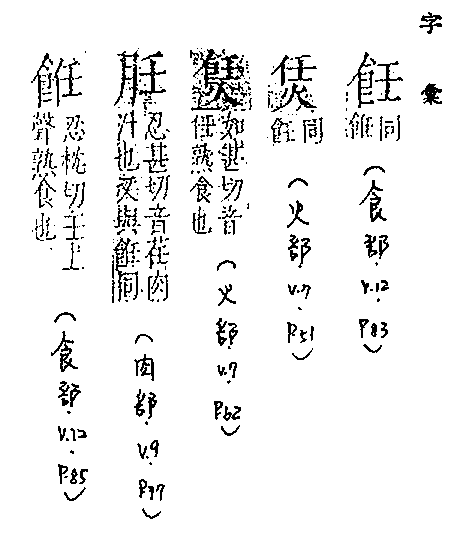 字彙
飪 同餁 (食部.V.12 P.83)
同飪 (火部.V.7 P.51)
如甚切音任熟食也 (火部.V.7.P.62)
䏕 忍甚切音荏肉汁也又與餁同 (肉部.V.9.P.97)
餁 忍枕切壬上聲熟食也 (食部.V.12.P.85)